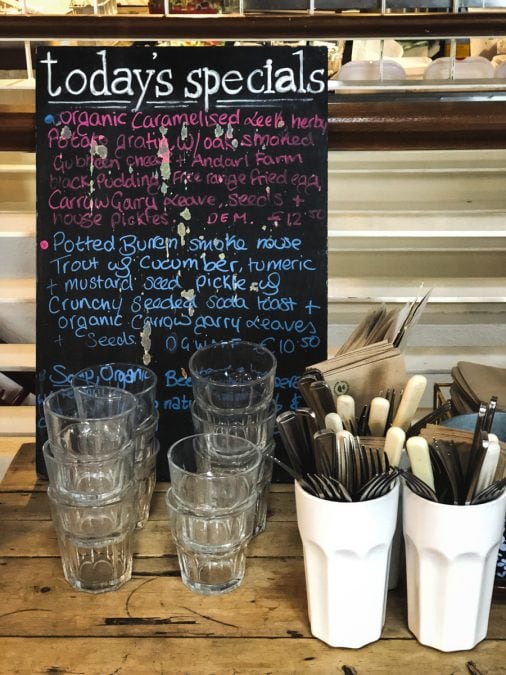 today's specials
organic Caramelised Leek herby
Potato gratin w/ oak smoked
Gubbeen cheese + Andarl Farm
black Pudding, Free range fried egg
Carrow Garry Leave, Seeds +
house Pickles. D E M. €12.50
Potted Burren smoke house
Trout w/ Cucumber, tumeric
+ mustard seed pickle w/
Crunchy Seeded Soda toast +
organic Carrowgarry Leaves
+ Seeds. D G W M F E €10.50
Soup, Organic Bee